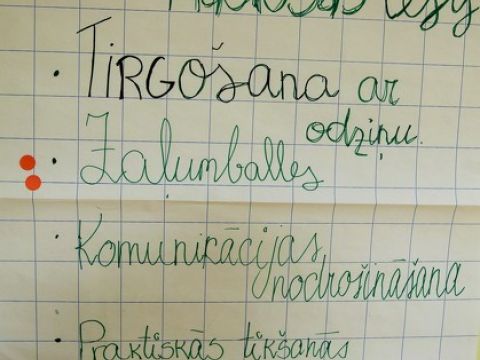 TIRGOŠANA ar
odziņu.
Zaļumballes
Komunikācijas
nodrošināšana
Praktiskās tikšanās